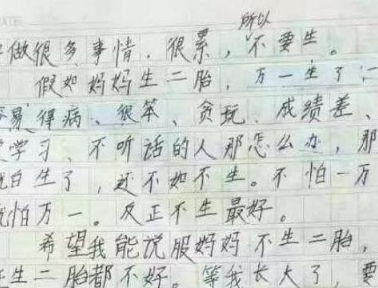 所以
做很多事情，很累，不要生。
假如妈妈生二胎，万一生了一
易得病、很笨、贪玩、成绩差、
学习、不听话的人那怎么办，那
白生了，还不如不生。不怕一万
怕万一。反正不生最好。
希望我能说服妈妈不生二胎，
生二胎都不好。等我长大了，要